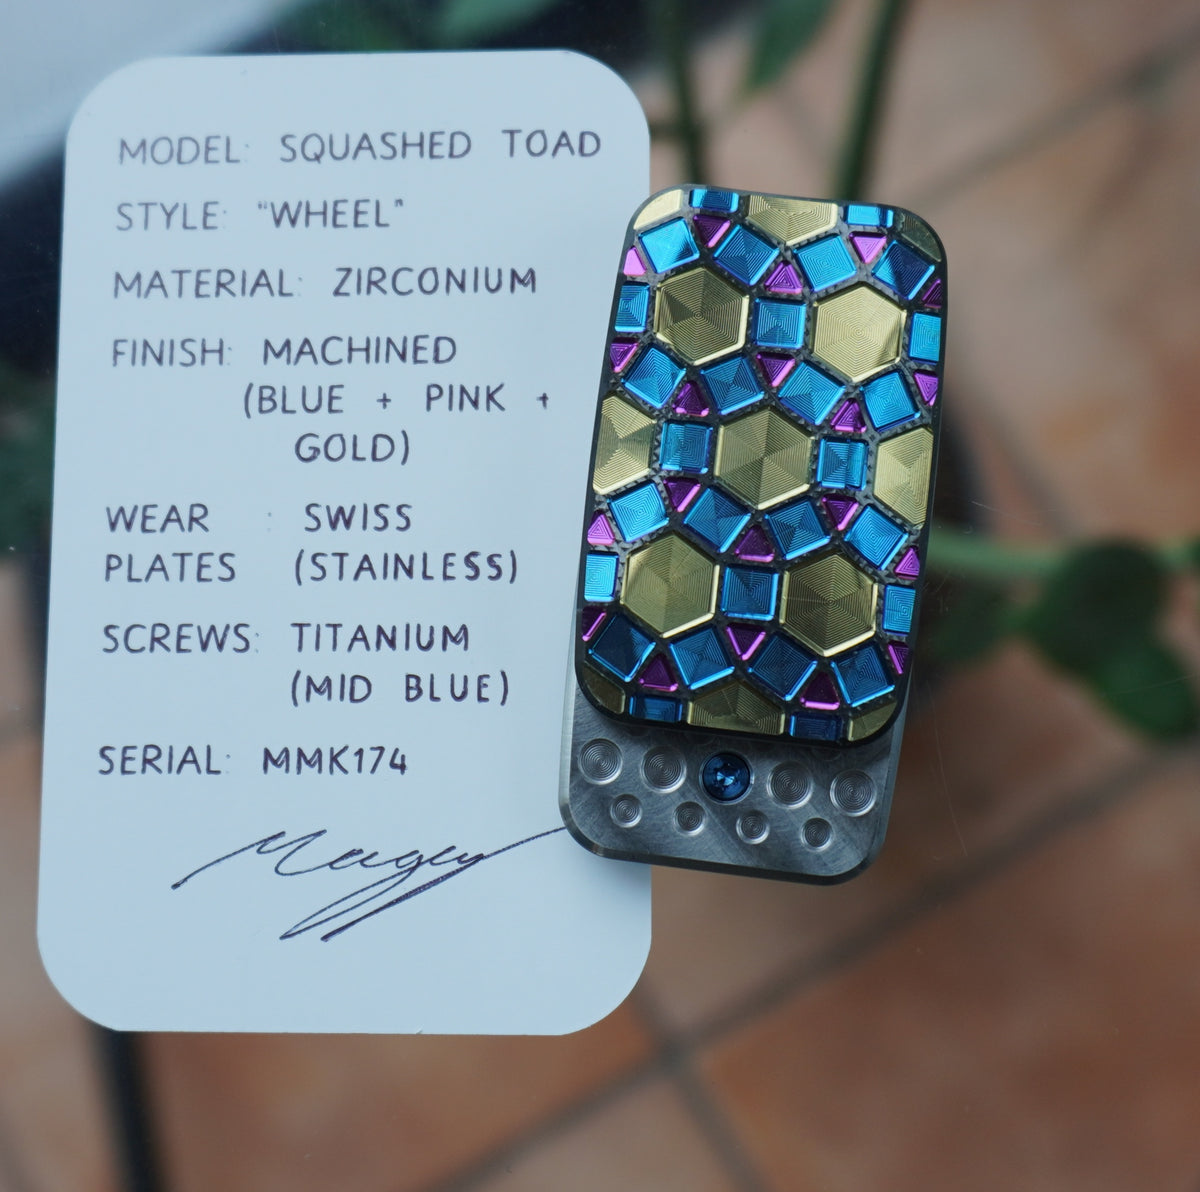 MODEL: SQUASHED TOAD
STYLE: "WHEEL"
MATERIAL: ZIRCONIUM
FINISH: MACHINED
(BLUE + PINK +
GOLD)
WEAR : SWISS
PLATES (STAINLESS)
SCREWS: TITANIUM
(MID BLUE)
SERIAL: MMK174